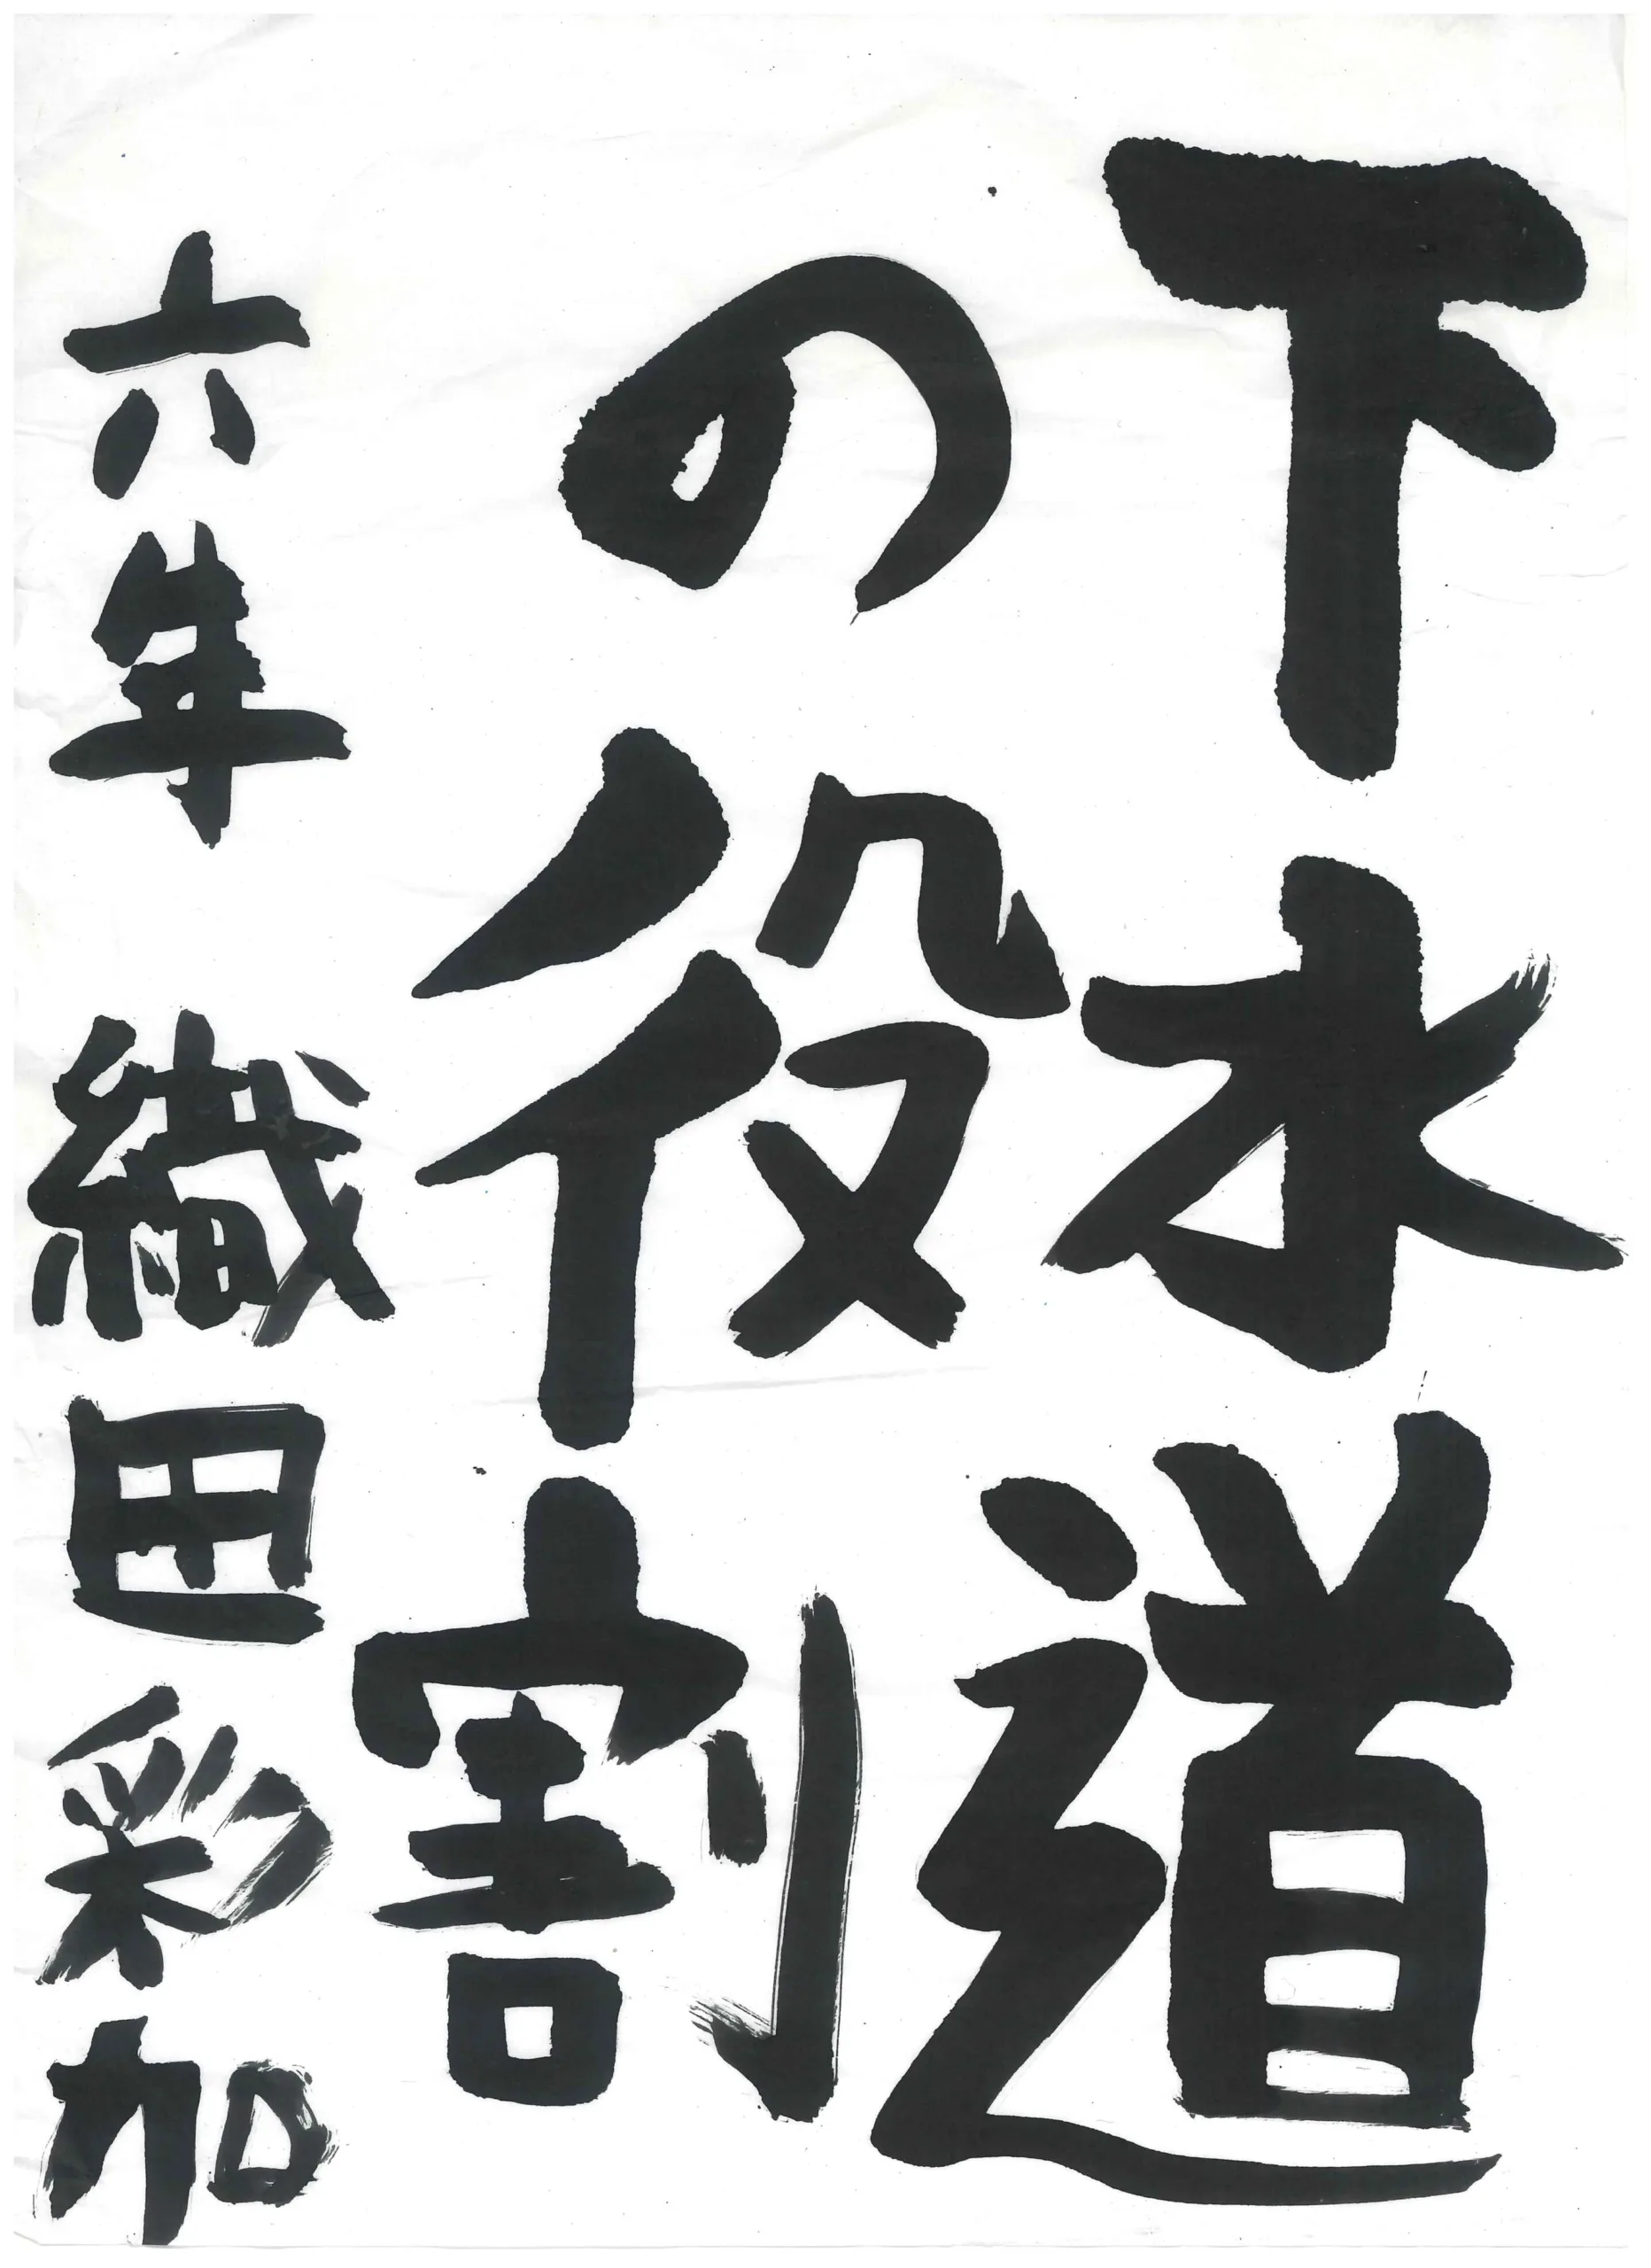 下水道
の役割
六年 織田彩加